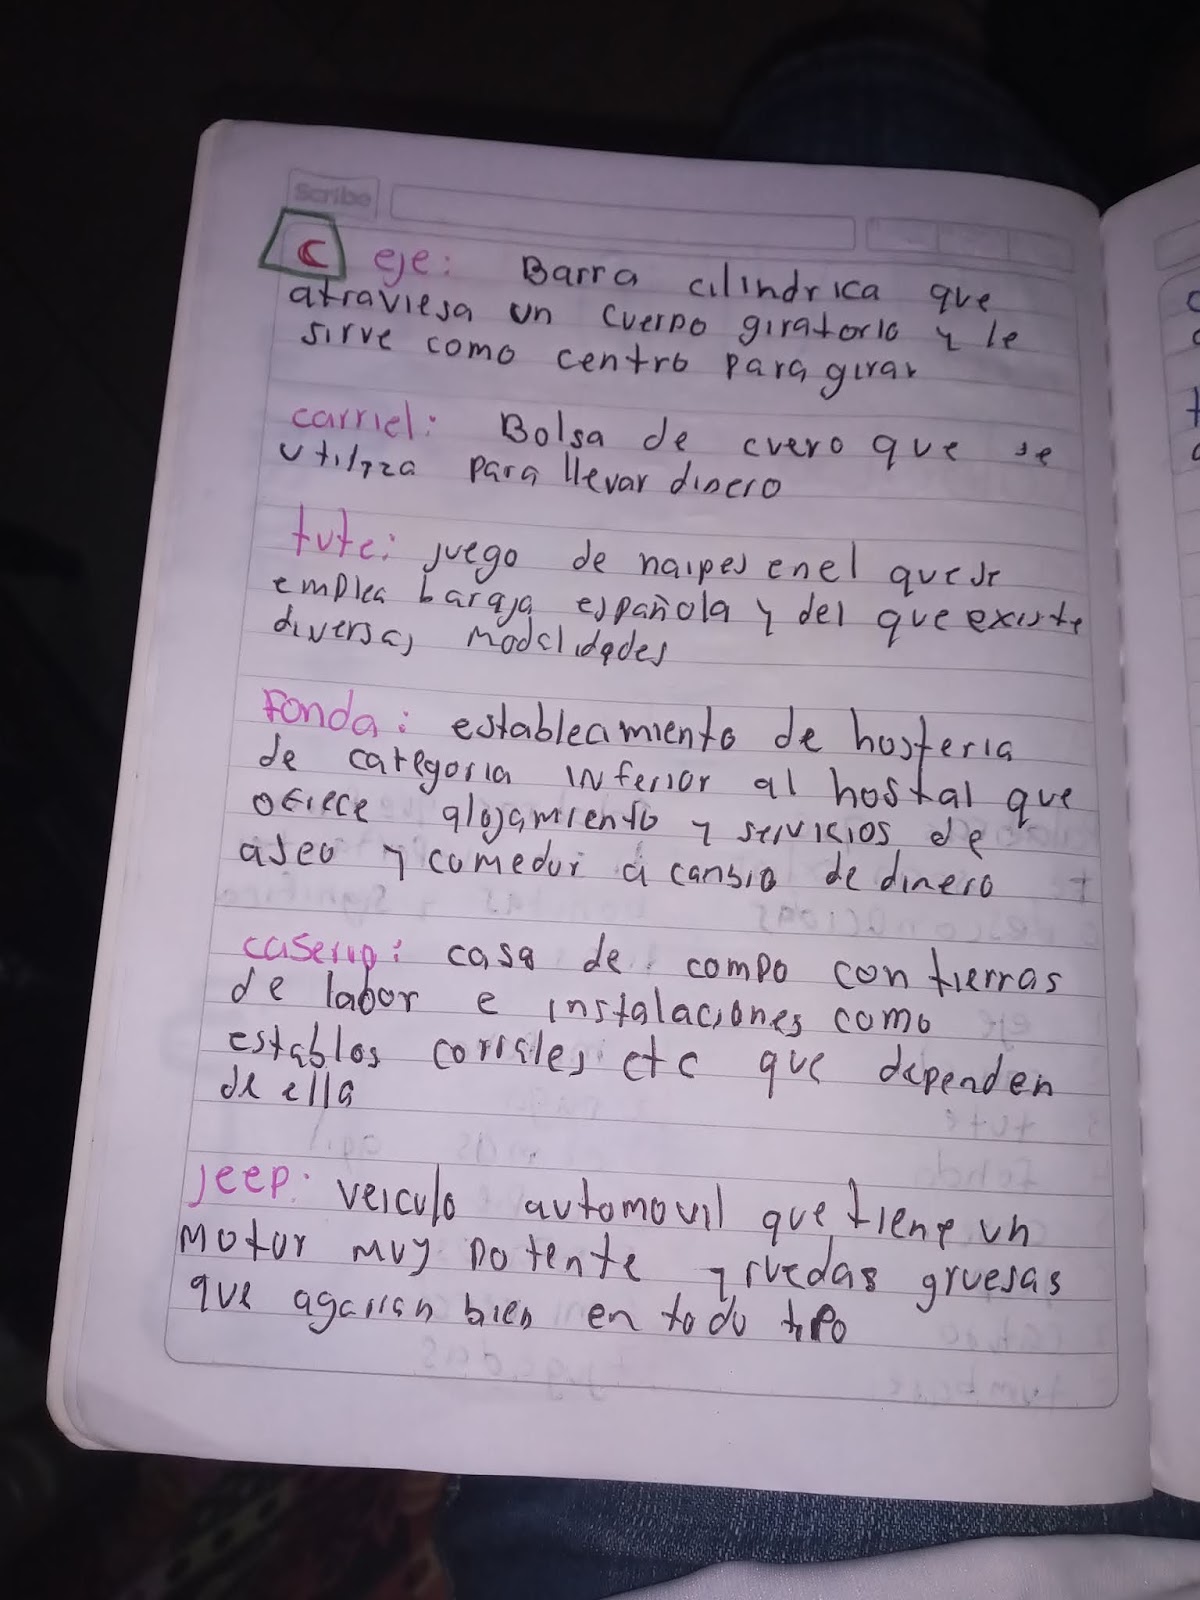 Scribe
C eje: Barra cilindrica que
atraviesa un cuerpo giratorio y le
sirve como centro para girar
carriel: Bolsa de cuero que se
utiliza para llevar dinero
tute: juego de naipes en el que se
emplea baraja española y del que existe
diversas modalidades
Fonda: establecimiento de hosteria
de categoria inferior al hostal que
ofrece alojamiento y servicios de
aseo y comedor a cambio de dinero
caserio: casa de compo con tierras
de labor e instalaciones como
establos corrales etc que dependen
de ella
jeep: veiculo automovil que tiene un
motor muy potente y ruedas gruesas
que agarran bien en todo tipo